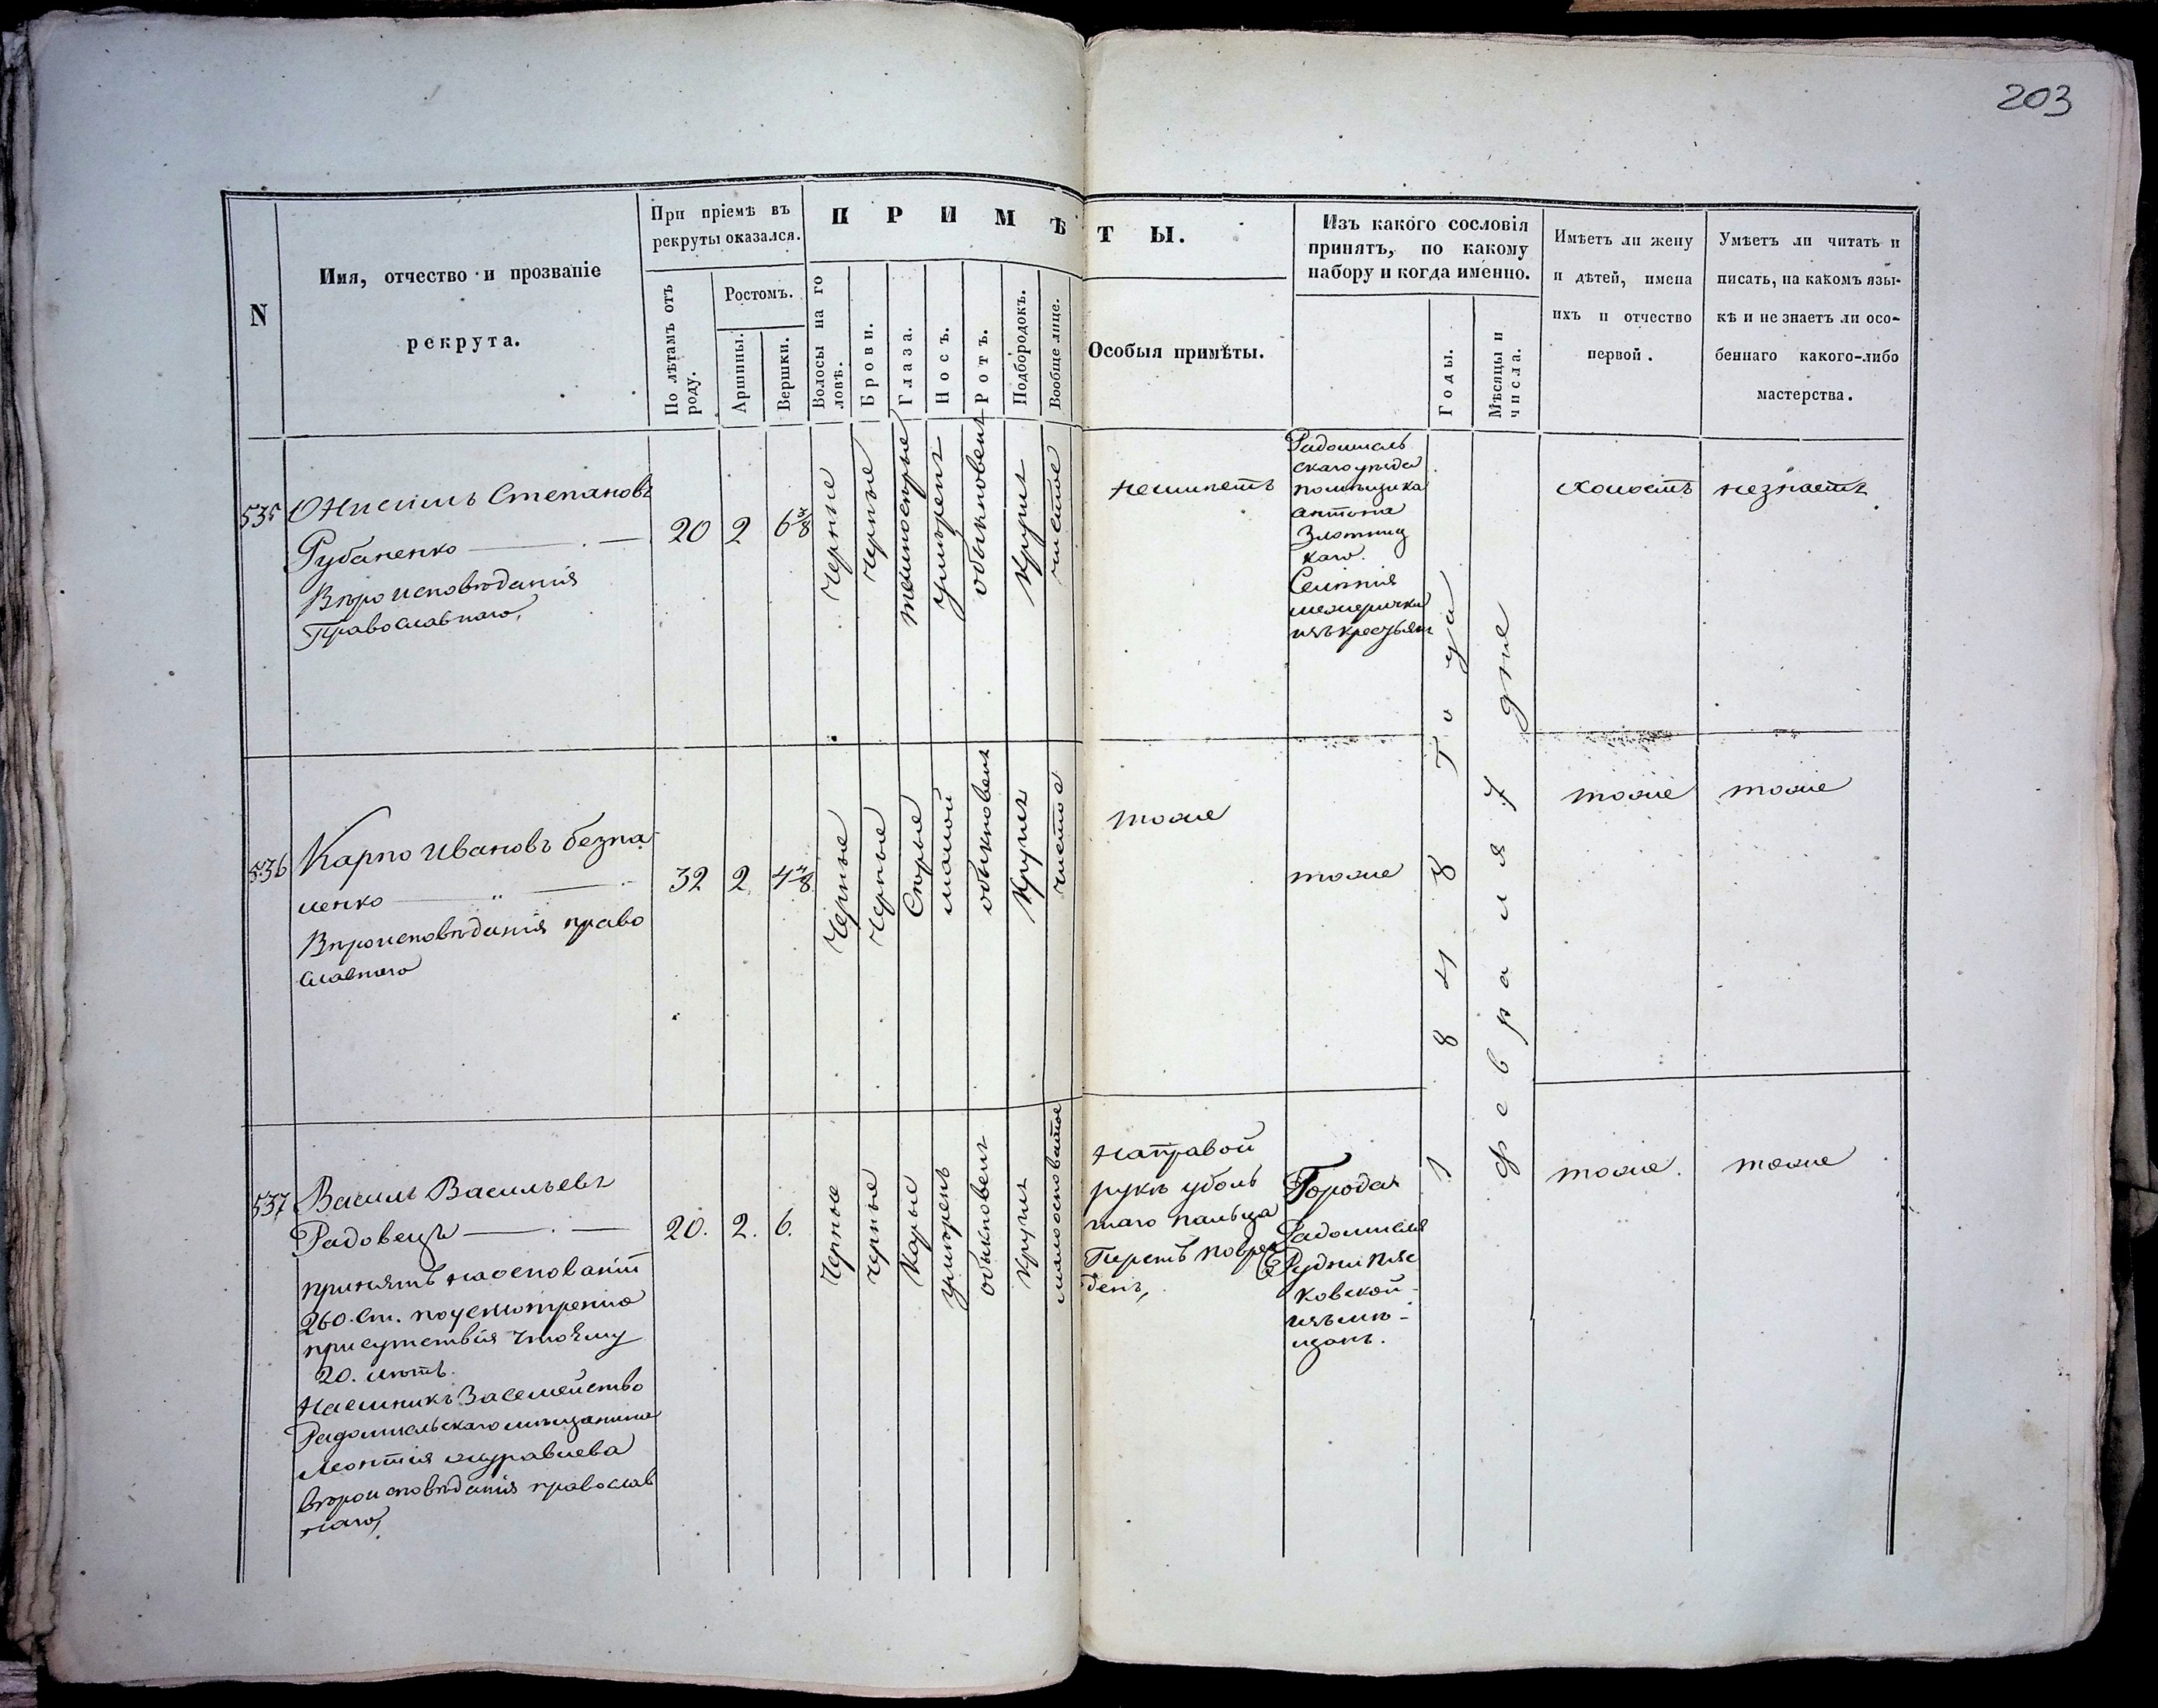 203
N
Имя, отчество и прозваніе
рекрута.
При пріемѣ въ
рекруты оказался.
По лѣтамъ отъ
роду.
Ростомъ.
Аршины.
Вершки.
П Р И М Ѣ Т Ы.
Волосы на го
ловѣ.
Брови.
Глаза.
Носъ.
Ротъ.
Подбородокъ.
Вообще лице.
Особыя примѣты.
Изъ какого сословія
принятъ, по какому
набору и когда именно.
Годы.
Мѣсяцы и
числа.
Имѣетъ ли жену
и дѣтей, имена
ихъ и отчество
первой.
Умѣетъ ли читать и
писать, на какомъ язы-
кѣ и не знаетъ ли осо-
беннаго какого-либо
мастерства.
535
Онисимъ Степановъ
Рубаненко
Вѣроисповѣданія
Православнаго,
20
2
6 3/8
Черные
черные
темносѣрые
умѣренъ
обыкновенъ
кругла
чистое
неимѣетъ
Радомысль
скаго уѣзда
помѣщика
антона
Злотниц
каго.
Селѣнія
изъ крестьянъ
холостъ
незнаетъ
1848 Года
февраля 7 дня
536
Карпо Ивановъ безпа
ленко
Вѣроисповѣданія право
славнаго
32
2
Черные
черные
Сѣрые
малой
обыкновенъ
кругла
чистое
тоже
тоже
тоже
тоже
537
Василь Васильевъ
Радовецъ
принятъ на основаніи
260. ст. по усмотренію
присутствія что ему
20. лѣтъ.
Наемникъ За семейство
Радомысльскаго мѣщанина
Леонтія журавлева
вѣроисповѣданія православ
наго,
20.
2.
6.
Черные
черные
Карые
умѣренъ
обыкновенъ
кругла
малоосповатое
на правой
рукѣ у боль
шаго пальца
Перстъ повреж
денъ,
Города
Радомысля
Рудни Пяс
ковской
изъ мѣ-
щанъ.
тоже.
тоже